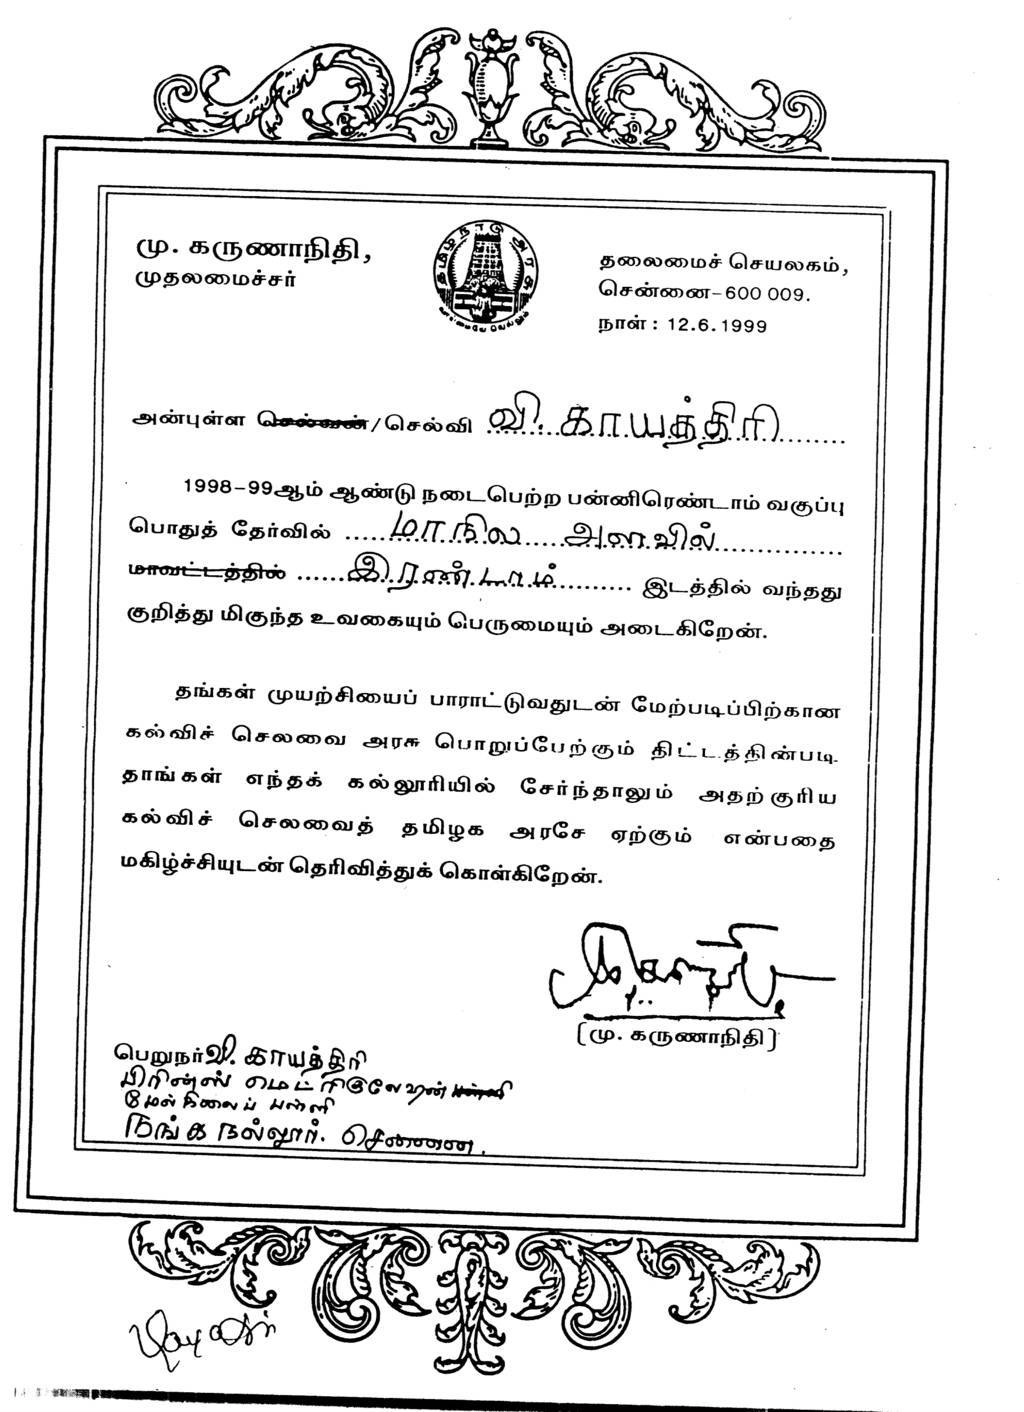 மு. கருணாநிதி,
முதலமைச்சர்
தமிழ்நாடு அரசு
வாய்மையே வெல்லும்
தலைமைச் செயலகம்,
சென்னை-600 009.
நாள் : 12.6.1999
அன்புள்ள செல்வன்/செல்வி வி. காயத்திரி
1998-99ஆம் ஆண்டு நடைபெற்ற பன்னிரெண்டாம் வகுப்பு
பொதுத் தேர்வில் மாநில அளவில்
மாவட்டத்தில் இரண்டாம் இடத்தில் வந்தது
குறித்து மிகுந்த உவகையும் பெருமையும் அடைகிறேன்.
தங்கள் முயற்சியைப் பாராட்டுவதுடன் மேற்படிப்பிற்கான
கல்விச் செலவை அரசு பொறுப்பேற்கும் திட்டத்தின்படி
தாங்கள் எந்தக் கல்லூரியில் சேர்ந்தாலும் அதற்குரிய
கல்விச் செலவைத் தமிழக அரசே ஏற்கும் என்பதை
மகிழ்ச்சியுடன் தெரிவித்துக் கொள்கிறேன்.
(மு. கருணாநிதி)
பெறுநர் வி. காயத்திரி
பிரின்ஸ் மெட்ரிகுலேஷன் பள்ளி
மேல்நிலைப் பள்ளி
நங்கநல்லூர். சென்னை.